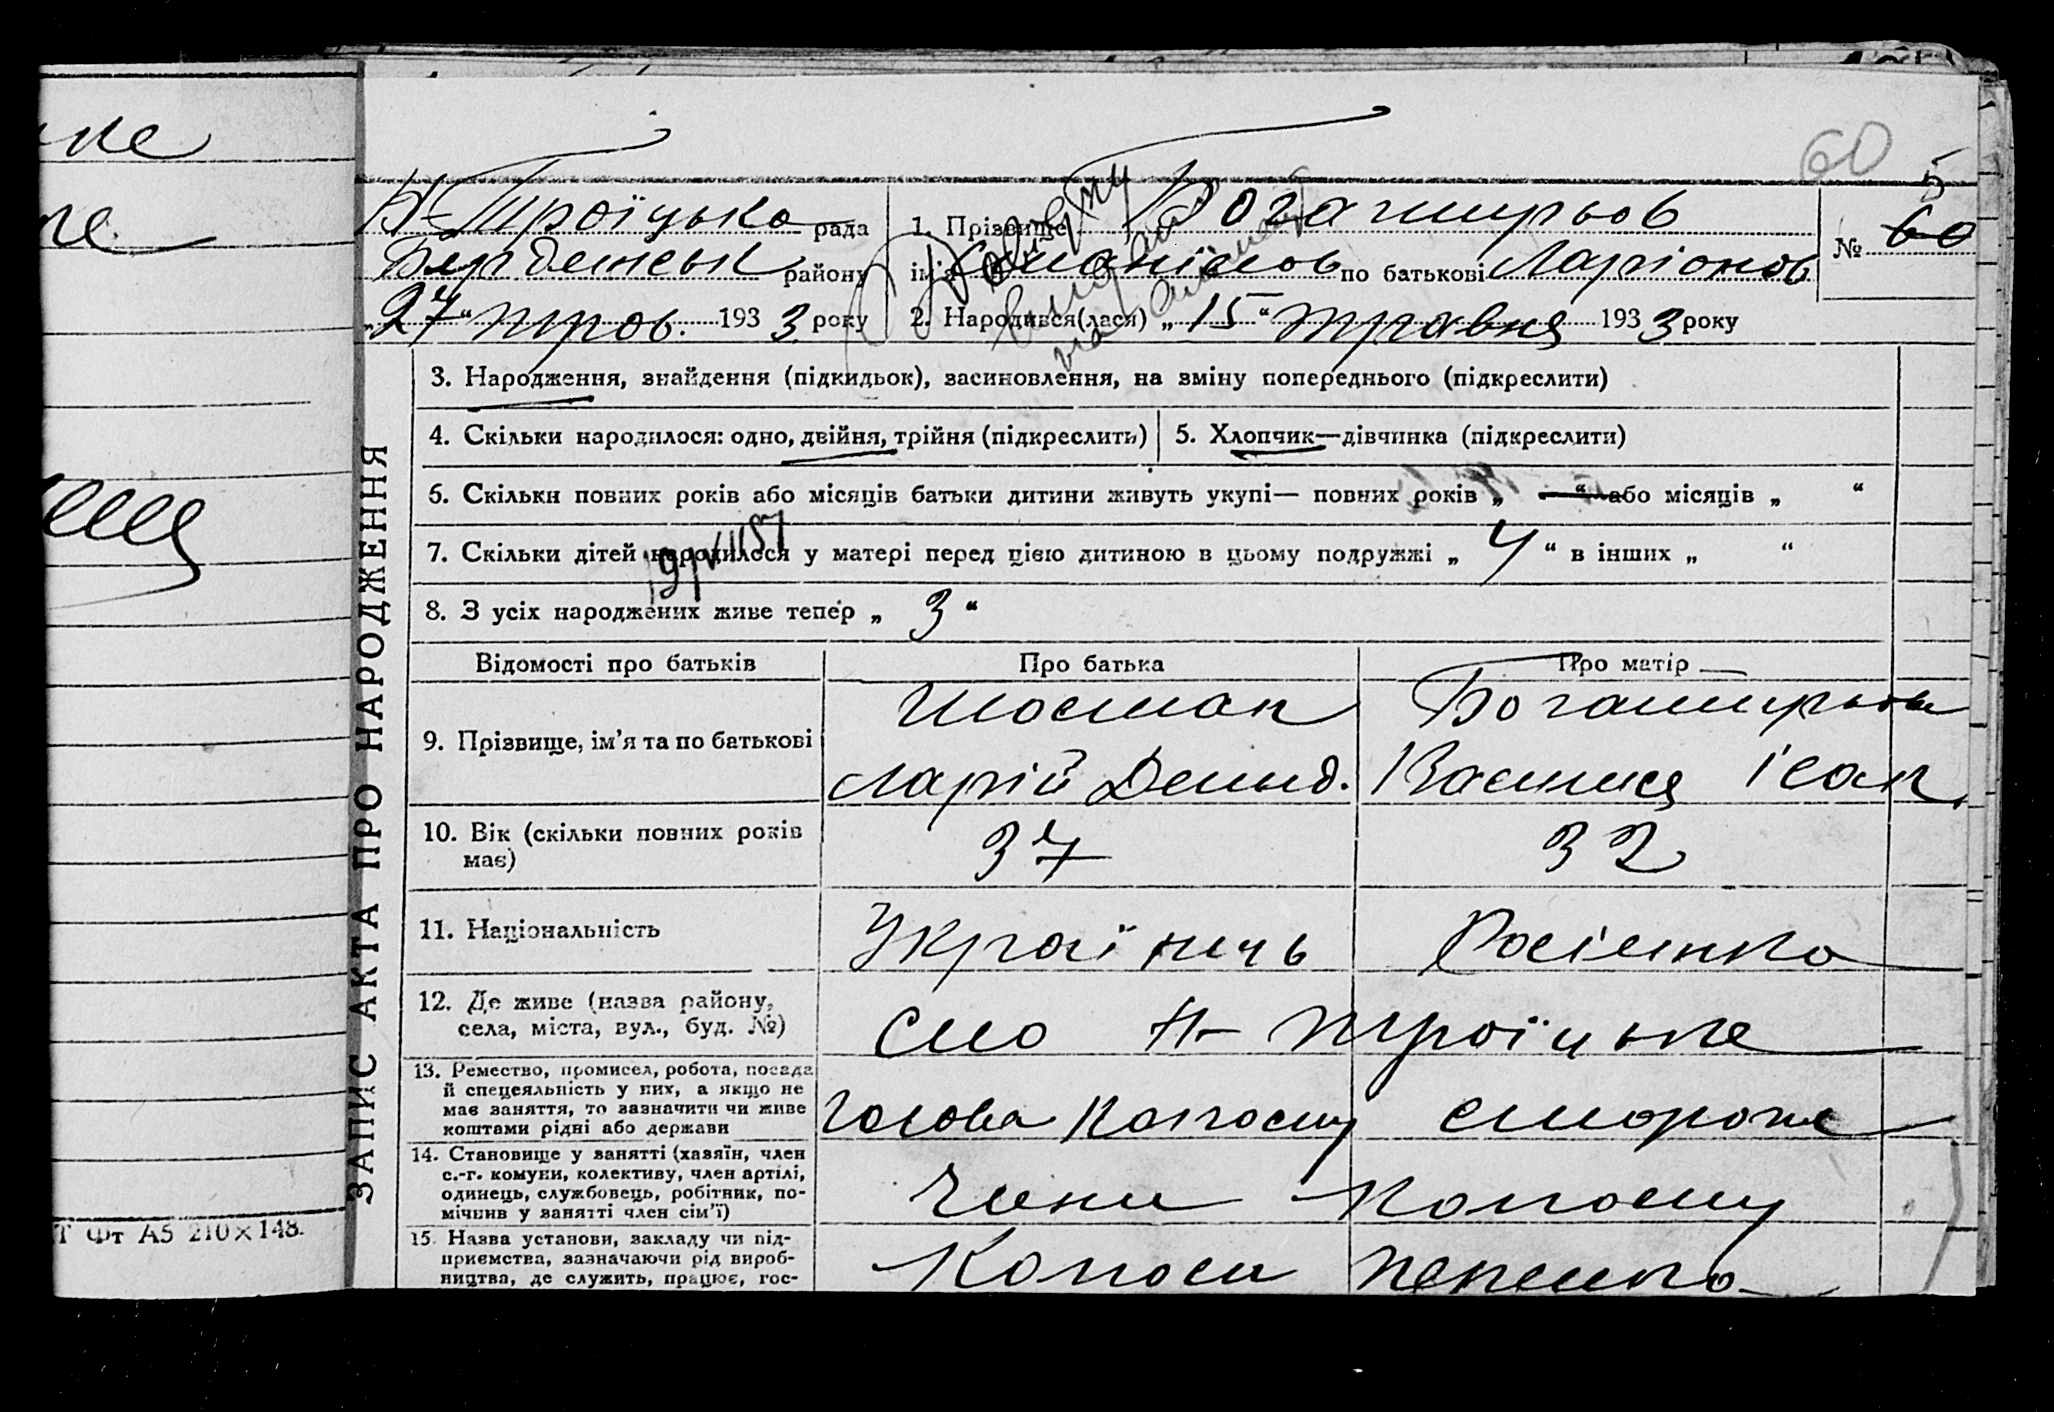 60
Н-Троїцька рада
1. Прізвище Богатирьов
№ 60 5
Бердянськ району
ім'я по батькові Ларіонов
„27“ трав. 1933 року
2. Народився(лася) „15“ травня 1933 року
3. Народження, знайдення (підкидьок), засиновлення, на зміну попереднього (підкреслити)
4. Скільки народилося: одно, двійня, трійня (підкреслити)
5. Хлопчик—дівчинка (підкреслити)
6. Скільки повних років або місяців батьки дитини живуть укупі— повних років „ — “ або місяців „ “
7. Скільки дітей народилося у матері перед цією дитиною в цьому подружжі „ 4 “ в інших „ “
8. З усіх народжених живе тепер „ 3 “
Відомості про батьків
Про батька
Про матір
9. Прізвище, ім'я та по батькові
Шостак
Ларій Демид.
Богатирьова
10. Вік (скільки повних років
має)
37
32
11. Національність
Українець
Росіянка
12. Де живе (назва району,
села, міста, вул., буд. №)
село Н-Троїцьке
13. Ремество, промисел, робота, посада
й спецеяльність у них, а якщо не
має заняття, то зазначити чи живе
коштами рідні або держави
Голова колгоспу
14. Становище у занятті (хазяїн, член
с.-г. комуни, колективу, член артілі,
одинець, службовець, робітник, по-
мічник у занятті член сім'ї)
Члени колгоспу
15. Назва установи, закладу чи під-
приємства, зазначаючи рід вироб-
ництва, де служить, працює, гос-
Колгосп
ЗАПИС АКТА ПРО НАРОДЖЕННЯ
Т Фт А5 210×148.